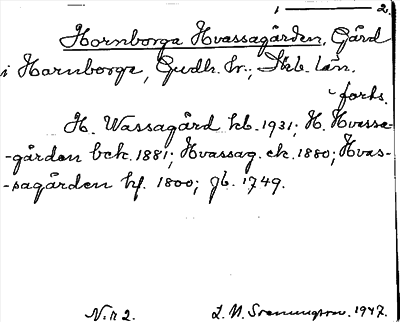 1 ——— 2.
Hornborga Hvassagården, Gård
i Hornborga, Gudh. hr.; Skb. län.
forts.
H. Wassagård kb. 1931; H. Hvassa-
-gården bek. 1881; Hvassag. ek. 1880; Hvas-
-sagården hf. 1800; jb. 1749.
N:r 2. L. N. 1947.